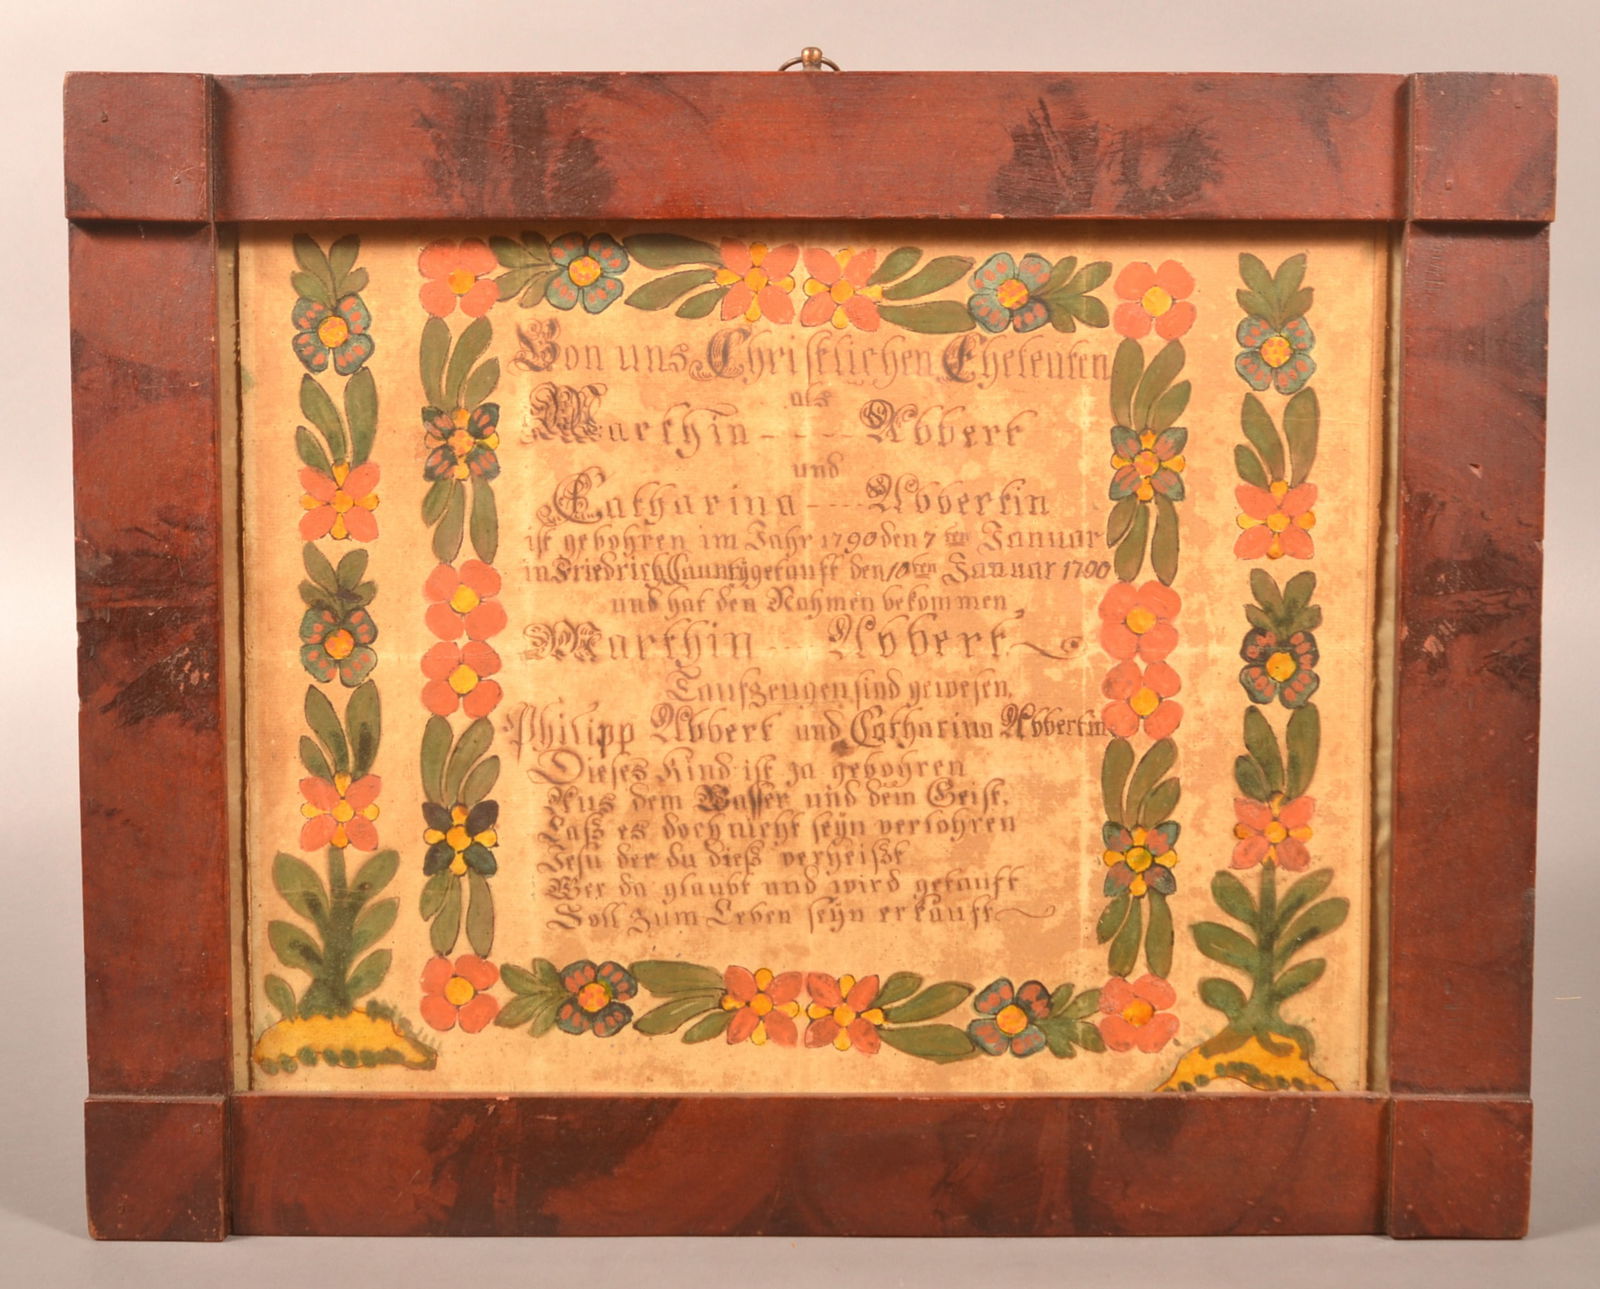 Von uns Christlichen Eheleuten
als
Marthin - - - - Abbert
und
Catharina - - - - Abbertin
ist gebohren im Jahr 1790 den 7ten Januar
in Friedrich Caunty getauft den 10ten Januar 1790
und hat den Nahmen bekommen,
Marthin - - - Abbert
Taufzeugen sind gewesen,
Philipp Abbert und Catharina Abbertin
Dieses Kind ist ja gebohren
Aus dem Wasser und dem Geist,
Laß es doch nicht seÿn verlohren
Jesu der du dieß verheißt
Wer da glaubt und wird getauft
Soll zum Leben seÿn erkauft